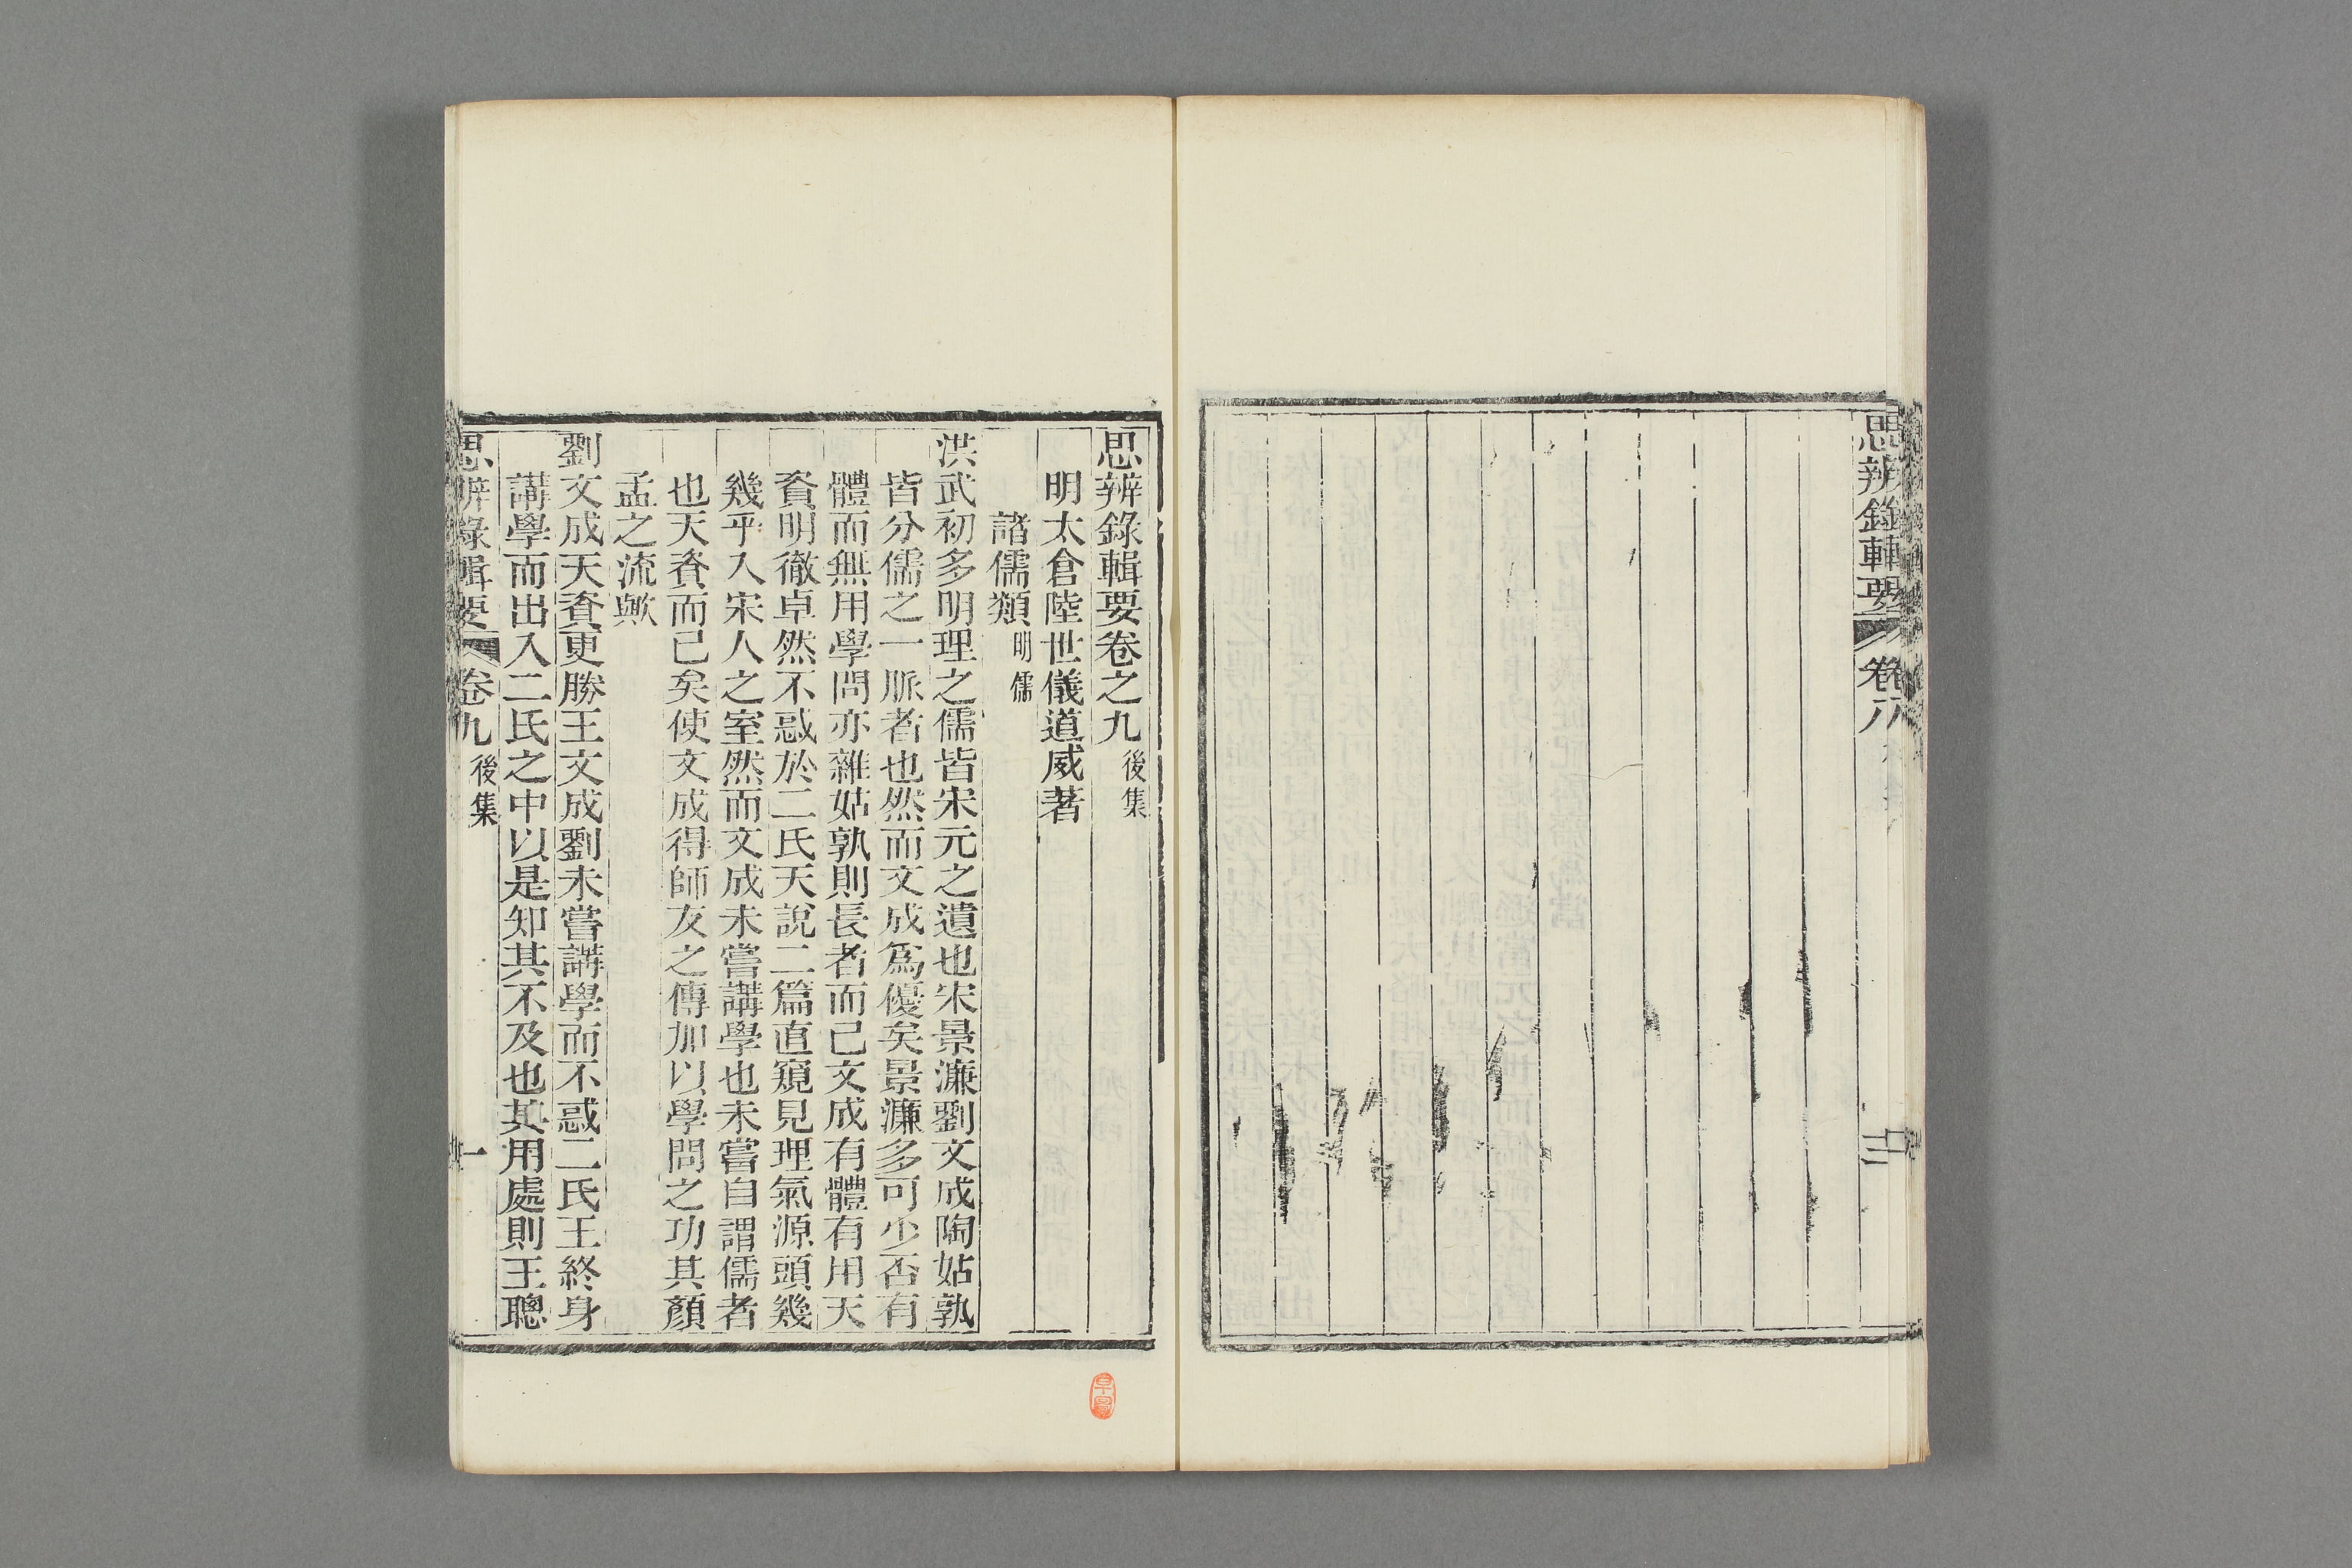 思辨錄輯要
卷八
思辨錄輯要卷之九後集
明太倉陸世儀道威著
諸儒類明儒
洪武初多明理之儒皆宋元之遺也宋景濂劉文成陶姑孰
皆分儒之一脈者也然而文成爲優矣景濂多可少否有
體而無用學問亦雜姑孰則長者而已文成有體有用天
資明徹卓然不惑於二氏天說二篇直窺見理氣源頭幾
幾乎入宋人之室然而文成未嘗講學也未嘗自謂儒者
也天資而已矣使文成得師友之傳加以學問之功其顏
孟之流歟
劉文成天資更勝王文成劉未嘗講學而不惑二氏王終身
講學而出入二氏之中以是知其不及也其用處則王聰
思辨錄輯要
卷九後集
一